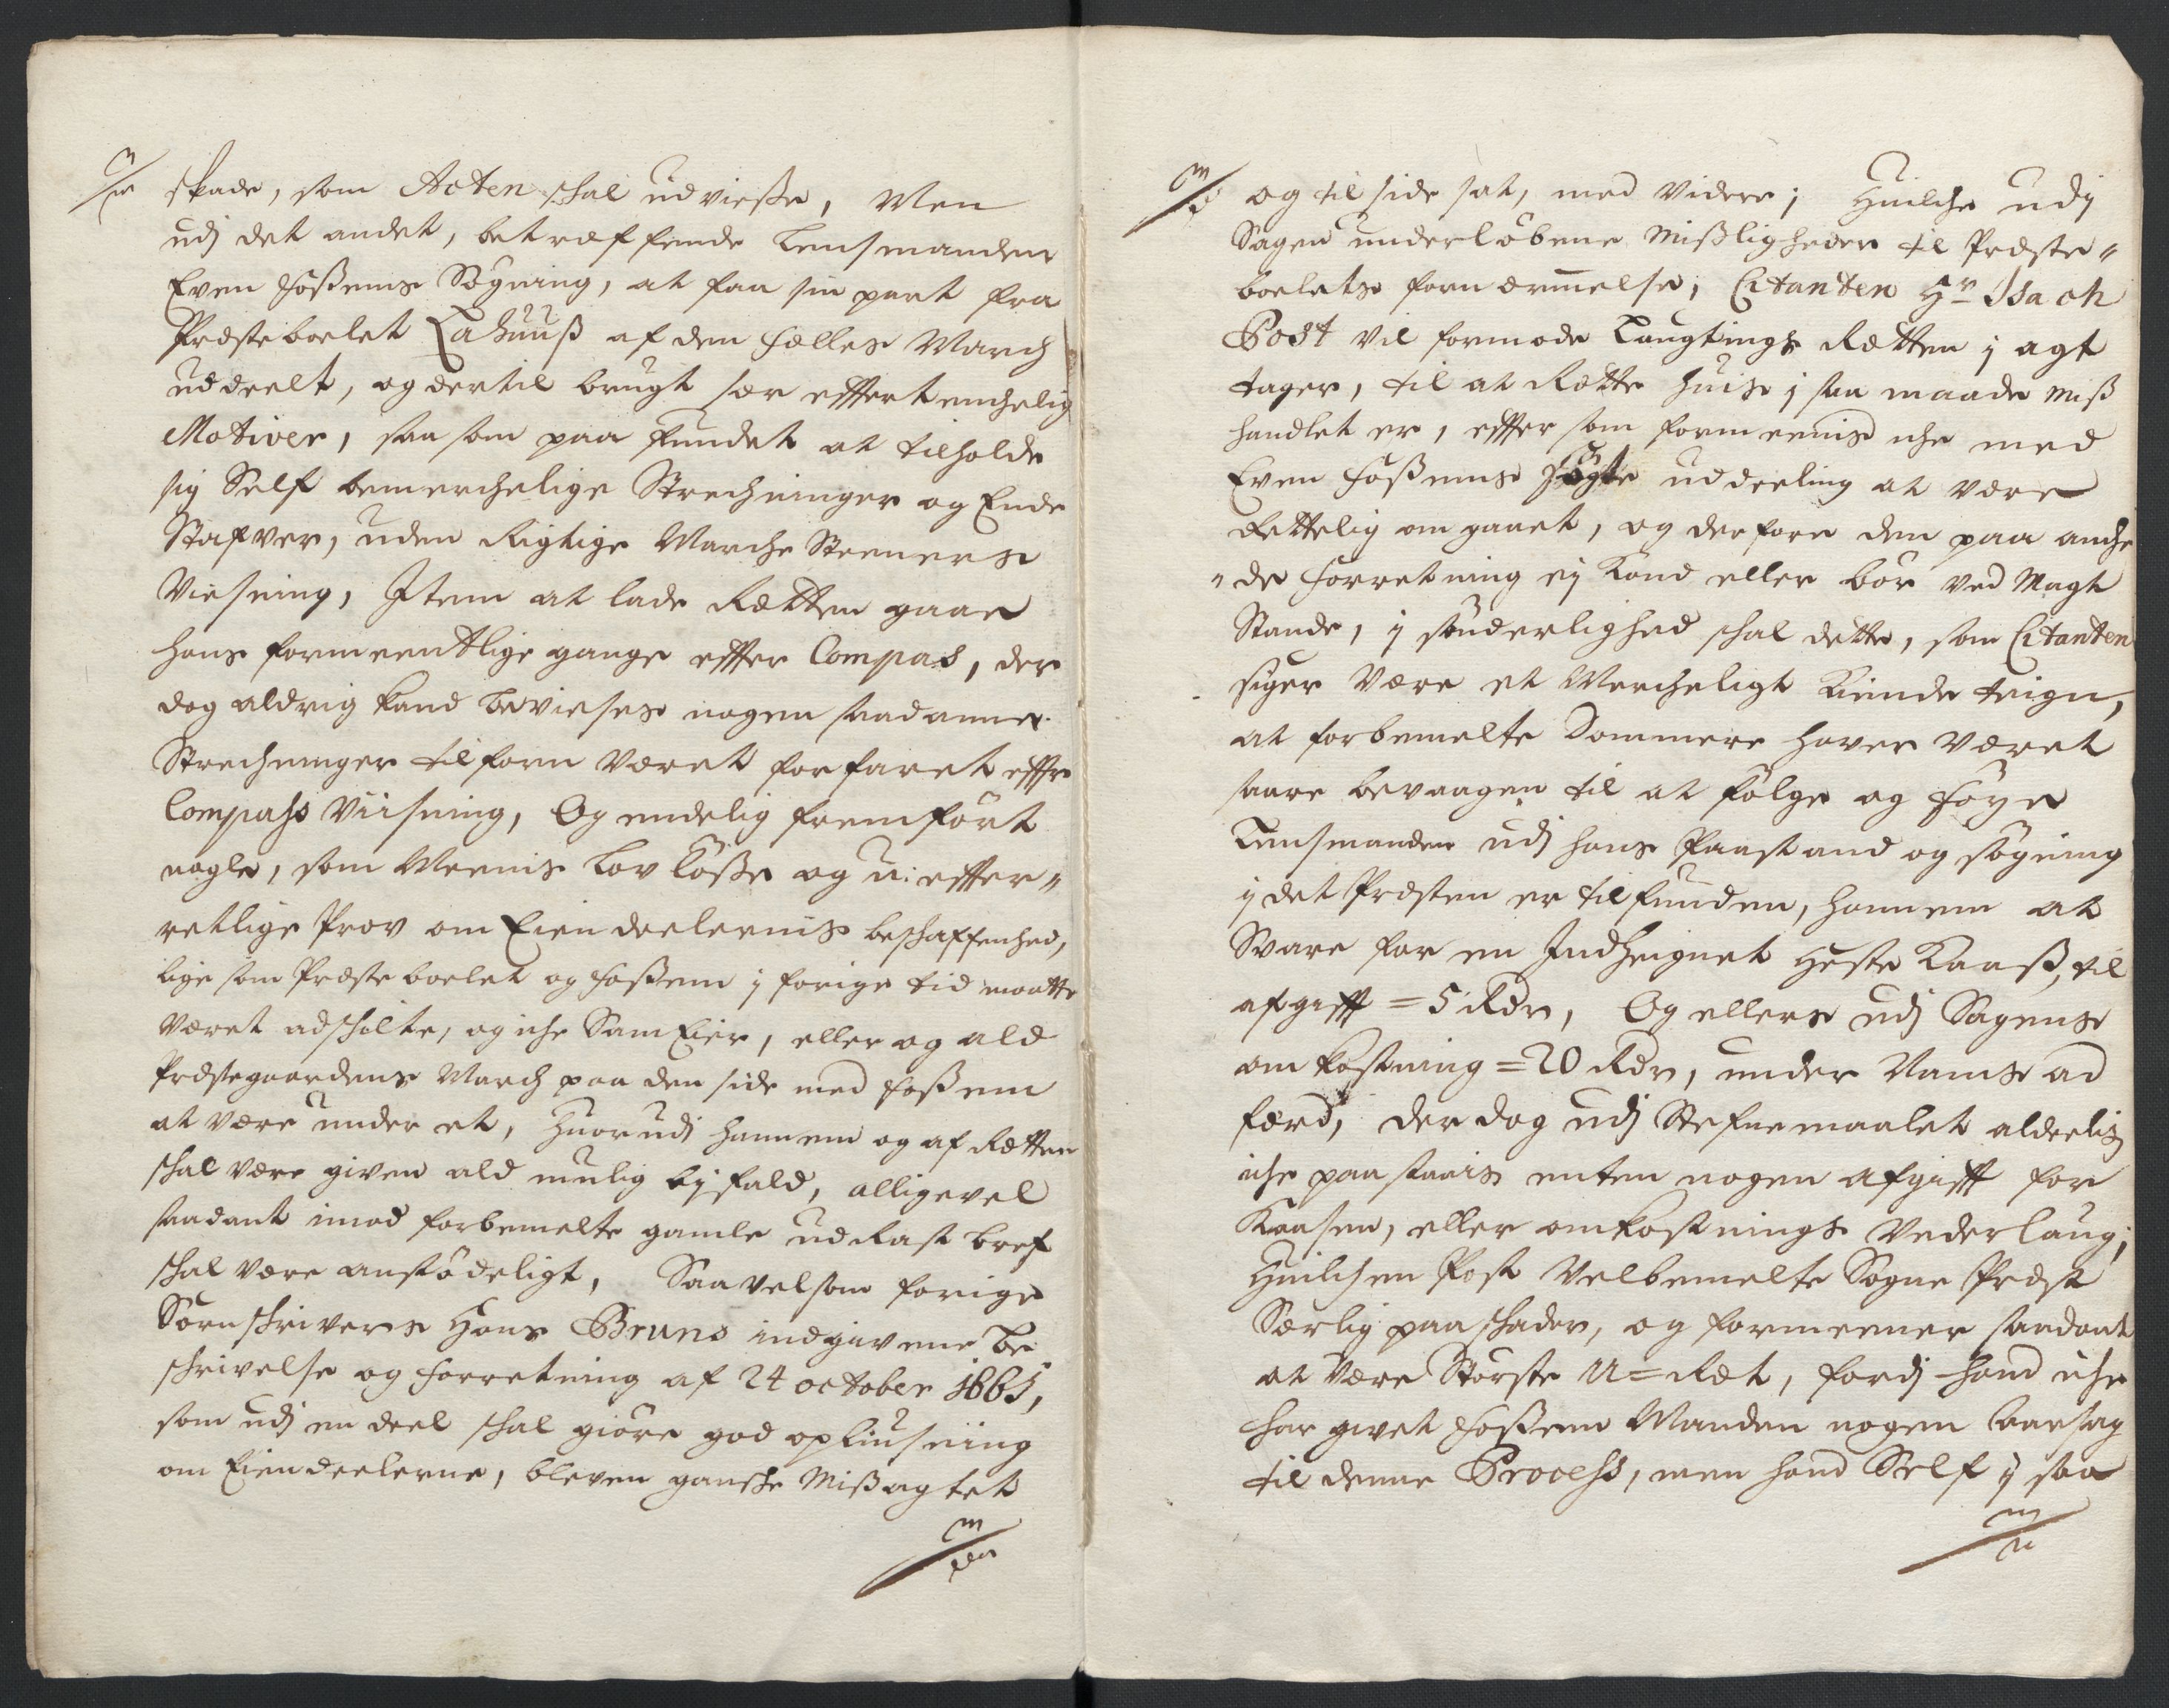 skade, som Acten schal udvieße, Men
udj det andet, betreffende Lensmanden
Even Foßems Søgning, at faa sin part fra
Præsteboelet Lahuuß af den fælles March
uddeelt, og dertil brugt sær effter tenchelig
Motiver, saa som paa fundet at tilholde
sig Self bemerchelige Strechninger og Ende
Stafver, uden Rigtige Marche Steeners
Viesning, Item at lade Retten gaae
hans formeentlige gange effter Compas, der
dog aldrig kand bevieses nogen saadanne
Strechninger tilforn været forfaret effter
Compahs Viisning, Og endelig fremført
nogle, som Meenis Lov løße og u: effter„
retlige Prov om Eiendeelernis beschaffenhed,
lige som Præsteboelet og Foßem j forige tid maatte
været adschilte, og iche SamEier, eller og ald
Præstegaardens March paa den side med Foßem
at være under et, Huorudj hannem og af Retten
schal være given ald mulig byfald, alligevel
saadant imod forbemelte gamle udkast bref
schal være anstødeligt, Saavelsom forige
Sornschrivers Hans Bruns indgivene be
schrivelse og Forretning af 24 october 1665,
som udj en deel schal giøre god opliusning
om Eiendeelerne, bleven gansche Mißagtet
m
og til side sat, med videre; Huilche udj
Sagen underløbene Mißligheder til Præste„
boelets fornærmelse, Citanten Hr Isach
Post vil formode Laugtings Retten j agt
tager, til at Rette huis j saa maade miß
handlet er, effter som formeenis iche med
Even Foßems søgte uddeeling at være
Rettelig omgaaet, og derfore den paa anche
„de Forretning ej kand eller bør ved Magt
Stande, j sønderlighed schal dette, som Citanten
siger være et Mercheligt kiende teign,
at forbemelte Dommere haver været
saare bevaagen til at følge og føye
Lensmanden udj hans Paastand og søgning
j det Præsten er tilfunden, hannem at
Svare for en Indheignet Heste Kaaß, til
afgifft = 5 Rdr, Og ellers udj Sagens
omkostning = 20 Rdr, under Nams ad
færd, der dog udj Stefnemaalet aldeelis
iche paastaais enten nogen afgifft for
Kaasen, eller omkostnings vederlaug;
Huilchen Post Velbemelte Sogne Præst
Særlig paaschader, og formeener saadant
at være Største U=Ret, fordj hand iche
har givet Foßem Manden nogen aarsag
til denne Procehs, men hand Self j saa
m